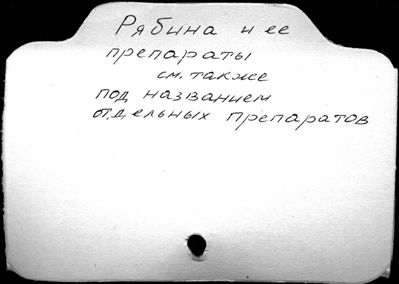 Рябина и ее
препараты
см. также
под названием
отдельных препаратов